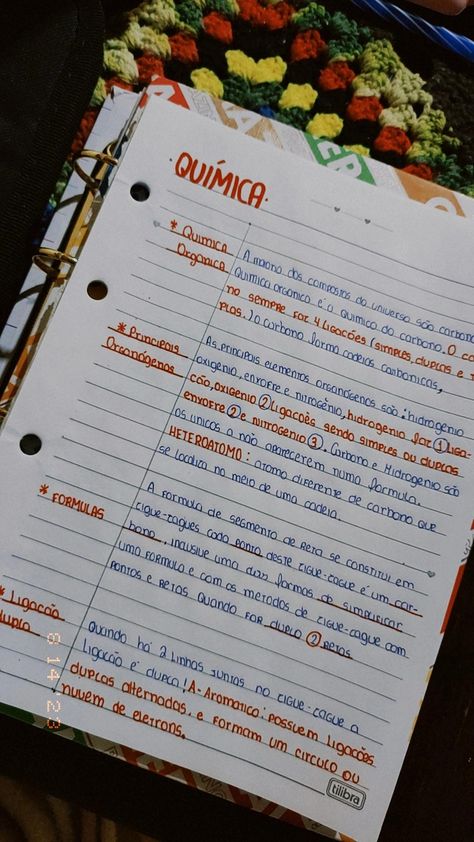 QUÍMICA.
* QUIMICA ORGÂNICA
A maioria dos compostos do universo são carbono
Quimica organica é a quimica do carbono. O
no sempre faz 4 ligações (simples, duplas e
plas.) O carbono forma cadeias carbonicas,
* PRINCIPAIS ORGANÓGENOS
As principais elementos organógenos são: hidrogenio
oxigenio, enxofre e nitrogênio, hidrogenio faz ① liga-
ção, oxigenio ② ligações sendo simples ou duplas
enxofre ② e nitrogenio ③. Carbono e Hidrogenio são
os unicos a não aparecerem numa formula.
HETEROATOMO: atomo diferente de carbono que
se localiza no meio de uma cadeia.
* FORMULAS
A formula de segmento de reta se constitui em
zigue-zagues cada ponta deste zigue-zague é um car-
bono, inclusive uma das formas de simplificar
uma formula e com os metodos de zigue-zague com
pontos e retas quando for dupla ② retas
* LIGAÇÃO dupla
Quando há 2 linhas juntas no zigue-zague a
ligação é dupla! A-Aromatico: possuem ligações
duplas alternadas, e formam um circulo ou
nuvem de eletrons.
tilibra
6 14 23